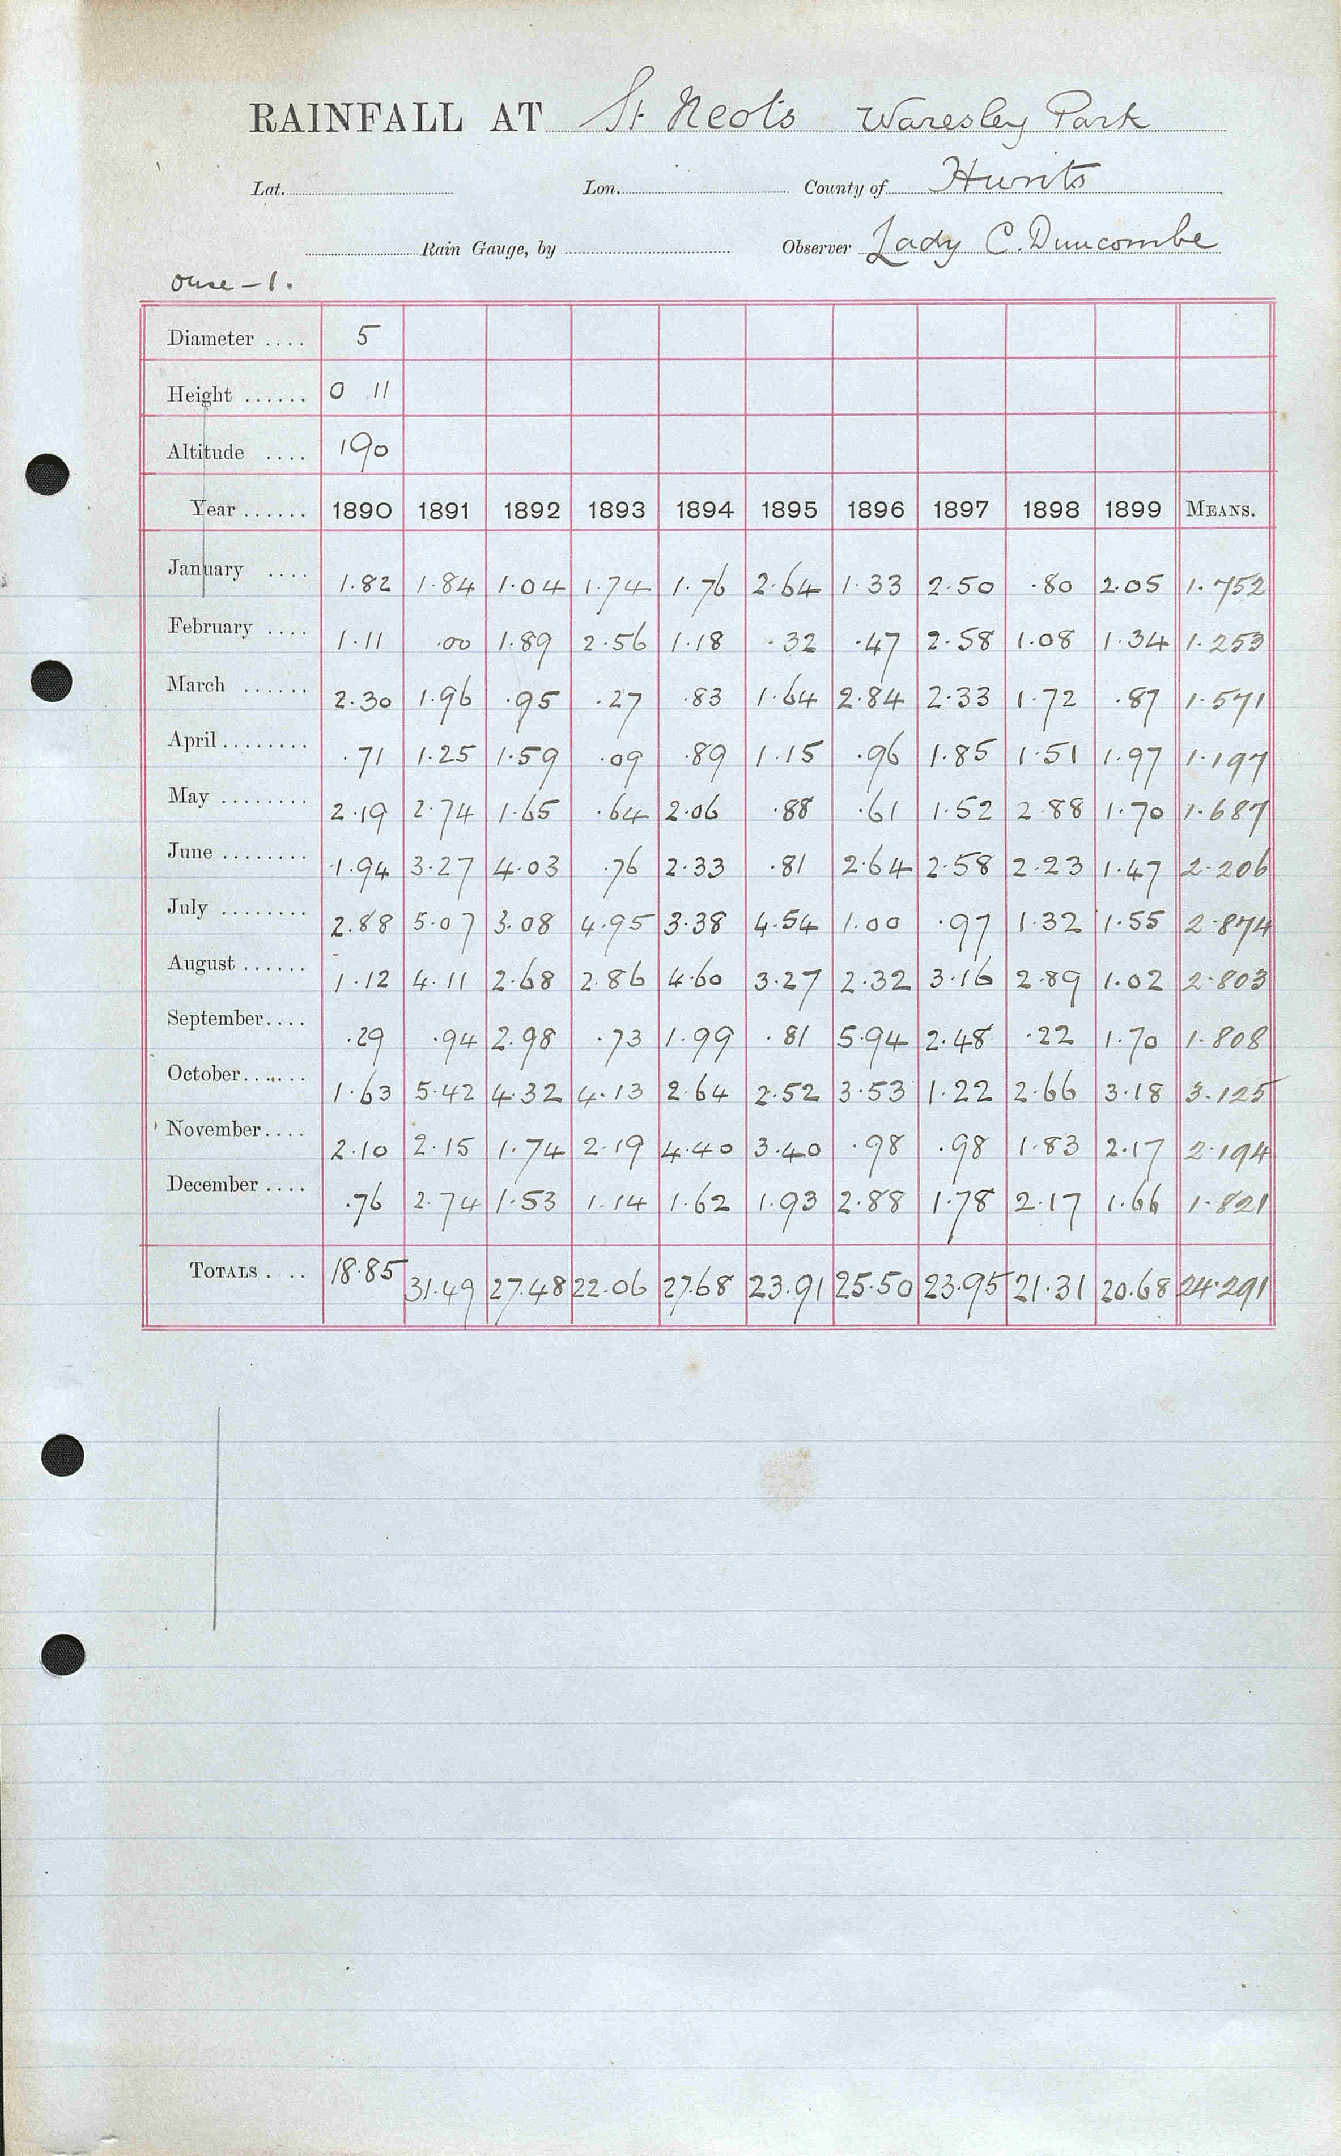 RAINFALL AT St Neots Waresley Park
Lat. Lon. County of Hunts
Rain Gauge, by Observer Lady C. Duncombe
Ouse - 1.
Diameter .... 5
Height ...... 0 11
Altitude .... 190
Year ...... 1890 1891 1892 1893 1894 1895 1896 1897 1898 1899 MEANS.
January .... 1.82 1.84 1.04 1.74 1.76 2.64 1.33 2.50 .80 2.05 1.752
February .... 1.11 .00 1.89 2.56 1.18 .32 .47 2.58 1.08 1.34 1.253
March ...... 2.30 1.96 .95 .27 .83 1.64 2.84 2.33 1.72 .87 1.571
April ........ .71 1.25 1.59 .09 .89 1.15 .96 1.85 1.51 1.97 1.197
May ........ 2.19 2.74 1.65 .64 2.06 .88 .61 1.52 2.88 1.70 1.687
June ........ 1.94 3.27 4.03 .76 2.33 .81 2.64 2.58 2.23 1.47 2.206
July ........ 2.88 5.07 3.08 4.95 3.38 4.54 1.00 .97 1.32 1.55 2.874
August ...... 1.12 4.11 2.68 2.86 4.60 3.27 2.32 3.16 2.89 1.02 2.803
September .... .29 .94 2.98 .73 1.99 .81 5.94 2.48 .22 1.70 1.808
October ...... 1.63 5.42 4.32 4.13 2.64 2.52 3.53 1.22 2.66 3.18 3.125
November .... 2.10 2.15 1.74 2.19 4.40 3.40 .98 .98 1.83 2.17 2.194
December .... .76 2.74 1.53 1.14 1.62 1.93 2.88 1.78 2.17 1.66 1.821
TOTALS .... 18.85 31.49 27.48 22.06 27.68 23.91 25.50 23.95 21.31 20.68 24.291